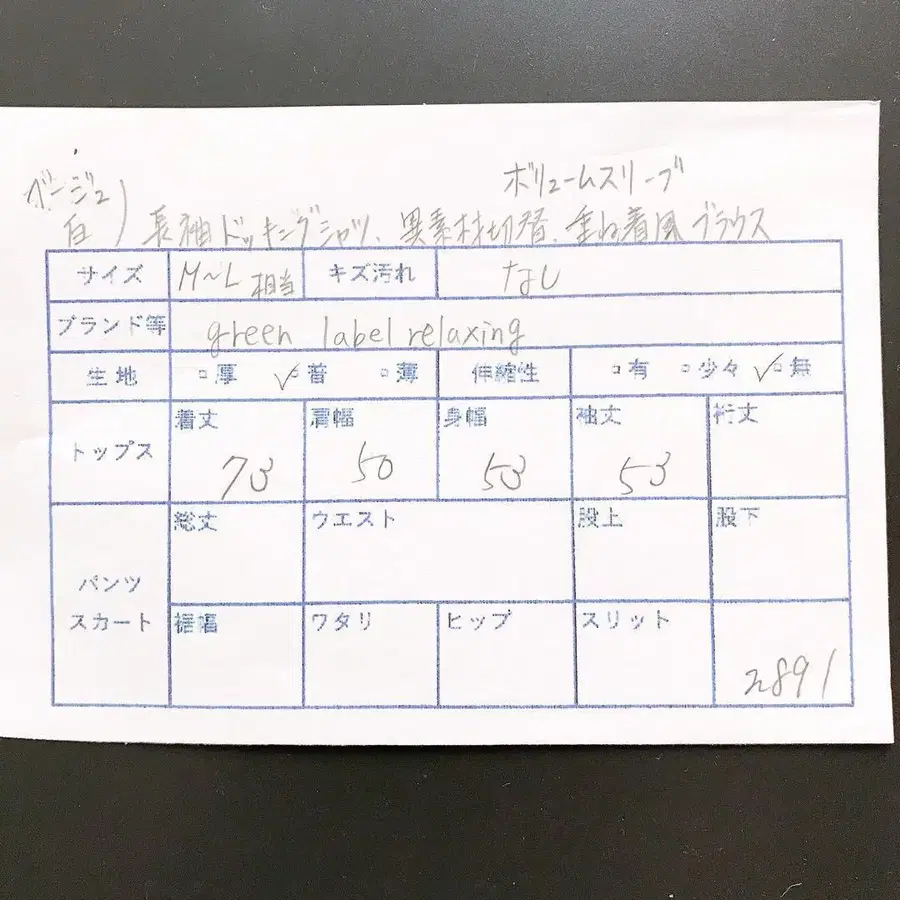 ボリュームスリーブ
ベージュ
白) 長袖ドッキングシャツ、異素材切替、重ね着風ブラウス
サイズ M~L 相当 キズ汚れ なし
ブランド等 green label relaxing
生地 □厚 ✓□普 □薄 伸縮性 □有 □少々 ✓□無
トップス 着丈 肩幅 身幅 袖丈 裄丈
73 50 53 53
パンツ スカート
総丈 ウエスト 股上 股下
裾幅 ワタリ ヒップ スリット
n891